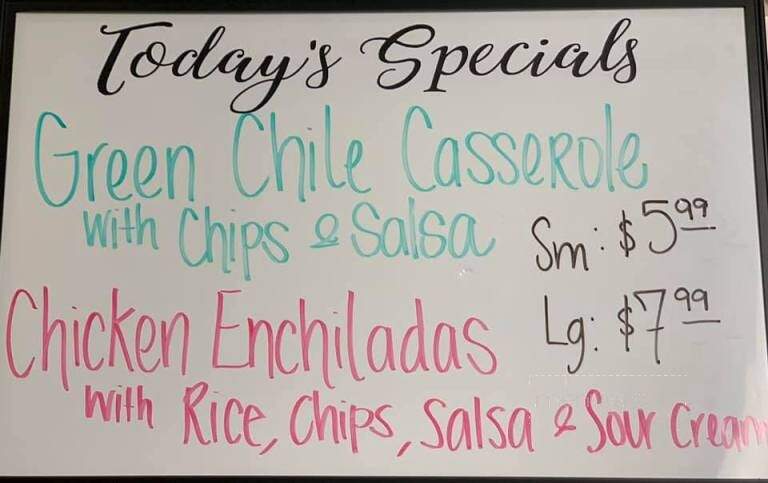 Today's Specials
Green Chile Casserole
with Chips & Salsa
Sm: $5.99
Chicken Enchiladas
Lg: $7.99
with Rice, Chips, Salsa & Sour Cream